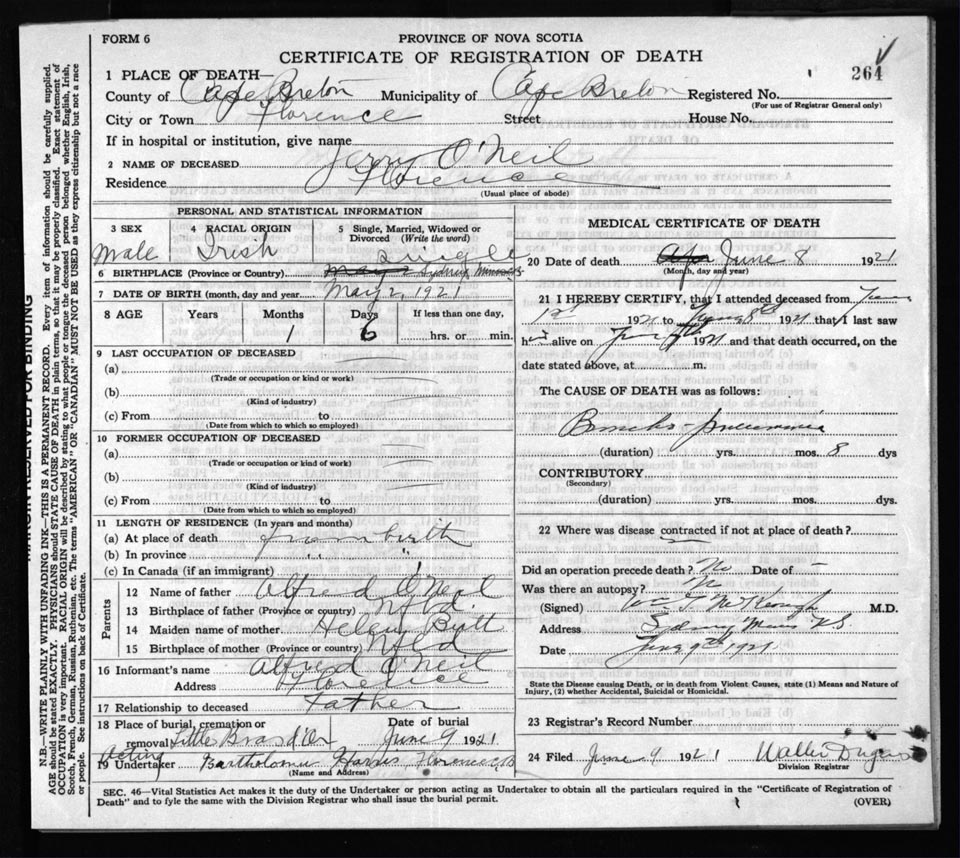 FORM 6
PROVINCE OF NOVA SCOTIA
CERTIFICATE OF REGISTRATION OF DEATH
264
1 PLACE OF DEATH—
County of Cape Breton Municipality of Cape Breton Registered No.
(For use of Registrar General only)
City or Town Florence Street House No.
If in hospital or institution, give name
2 NAME OF DECEASED Jerry O'Neil
Residence Florence
(Usual place of abode)
PERSONAL AND STATISTICAL INFORMATION
3 SEX Male
4 RACIAL ORIGIN Irish
5 Single, Married, Widowed or Divorced (Write the word) Single
6 BIRTHPLACE (Province or Country) Sydney Mines
7 DATE OF BIRTH (month, day and year) May 2, 1921
8 AGE Years Months Days If less than one day,
1 6 hrs. or min.
9 LAST OCCUPATION OF DECEASED
(a)
(Trade or occupation or kind of work)
(b)
(Kind of industry)
(c) From to
(Date from which to which so employed)
10 FORMER OCCUPATION OF DECEASED
(a)
(Trade or occupation or kind of work)
(b)
(Kind of industry)
(c) From to
(Date from which to which so employed)
11 LENGTH OF RESIDENCE (In years and months)
(a) At place of death from birth
(b) In province " "
(c) In Canada (if an immigrant)
Parents
12 Name of father Alfred O'Neil
13 Birthplace of father (Province or country) Nfld.
14 Maiden name of mother Helen Butt
15 Birthplace of mother (Province or country) Nfld
16 Informant's name Alfred O'Neil
Address Florence
17 Relationship to deceased Father
18 Place of burial, cremation or removal Little Bras d'Or Date of burial June 9 1921
Acting
19 Undertaker Bartholomu Harris, Florence CB
(Name and Address)
MEDICAL CERTIFICATE OF DEATH
20 Date of death June 8 1921
(Month, day and year)
21 I HEREBY CERTIFY, that I attended deceased from June
1st 1921 to June 8th 1921 that I last saw
him alive on June 1921 and that death occurred, on the
date stated above, at m.
The CAUSE OF DEATH was as follows:
Broncho-pneumonia
(duration) yrs. mos. 8 dys
CONTRIBUTORY
(Secondary)
(duration) yrs. mos. dys.
22 Where was disease contracted if not at place of death?
Did an operation precede death? No Date of -
Was there an autopsy? No
(Signed) McKeough M.D.
Address Sydney Mines N.S.
Date June 9th 1921
State the Disease causing Death, or in death from Violent Causes, state (1) Means and Nature of
Injury, (2) whether Accidental, Suicidal or Homicidal.
23 Registrar's Record Number
24 Filed June 9 1921 Walter
Division Registrar
SEC. 46—Vital Statistics Act makes it the duty of the Undertaker or person acting as Undertaker to obtain all the particulars required in the "Certificate of Registration of
Death" and to fyle the same with the Division Registrar who shall issue the burial permit.
(OVER)
MARGIN RESERVED FOR BINDING
N.B.—WRITE PLAINLY WITH UNFADING INK—THIS IS A PERMANENT RECORD. Every item of information should be carefully supplied.
AGE should be stated EXACTLY. PHYSICIANS should STATE CAUSE OF DEATH in plain terms, so that it may be properly classified. Exact statement of
OCCUPATION is very important. RACIAL ORIGIN will be described by stating to what people or tongue the deceased person belonged whether English, Irish,
Scotch, French, German, Russian, Ruthenian, etc. The terms "AMERICAN" OR "CANADIAN" MUST NOT BE USED as they express citizenship but not a race
or people. See instructions on back of Certificate.